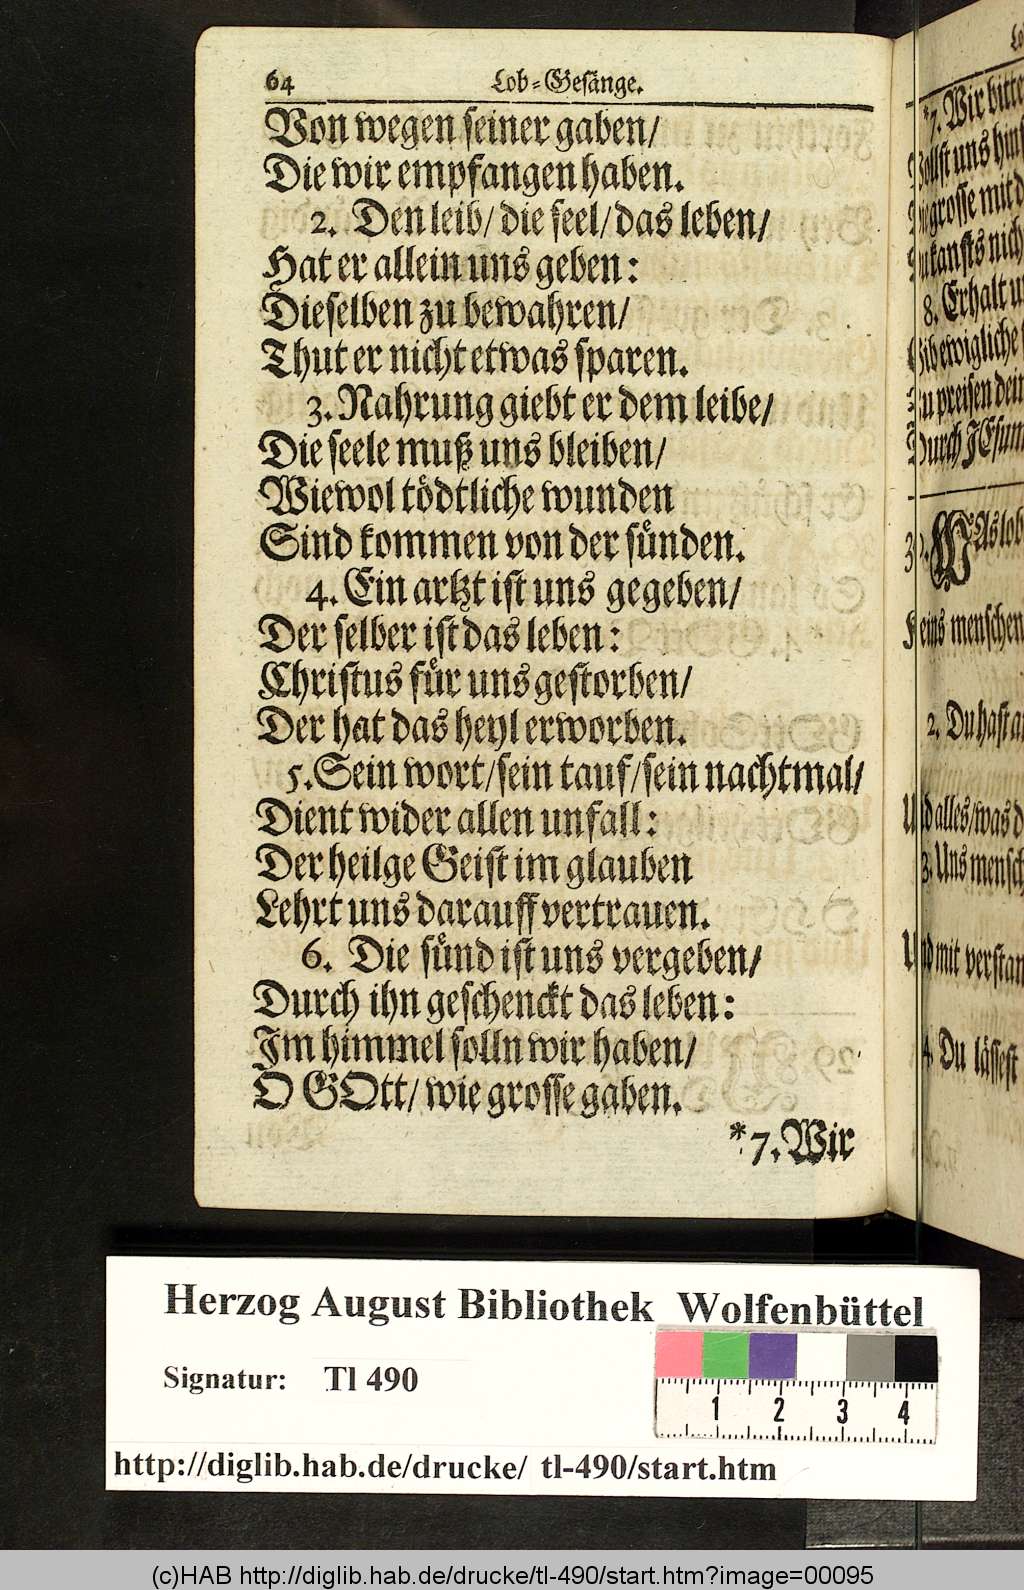 64 Lob-Gesänge.
Von wegen seiner gaben/
Die wir empfangen haben.
2. Den leib/ die seel/ das leben/
Hat er allein uns geben:
Dieselben zu bewahren/
Thut er nicht etwas sparen.
3. Nahrung giebt er dem leibe/
Die seele muß uns bleiben/
Wiewol tödtliche wunden
Sind kommen von der sünden.
4. Ein artzt ist uns gegeben/
Der selber ist das leben:
Christus für uns gestorben/
Der hat das heyl erworben.
5. Sein wort/ sein tauf/ sein nachtmal/
Dient wider allen unfall:
Der heilge Geist im glauben
Lehrt uns darauff vertrauen.
6. Die sünd ist uns vergeben/
Durch ihn geschenckt das leben:
Im himmel solln wir haben/
O GOtt/ wie grosse gaben.
*7. Wir
*7. Wir bitte
uns hin
grosse mit d
kansts nich
8. Erhalt
ewigliche
preisen dein
Durch JEsum
As lob
menschen
2. Du hast
alles/ was d
3. Uns mensch
mit verstan
4. Du lässest
Herzog August Bibliothek Wolfenbüttel
Signatur: Tl 490
1 2 3 4
http://diglib.hab.de/drucke/ tl-490/start.htm
(c)HAB http://diglib.hab.de/drucke/tl-490/start.htm?image=00095